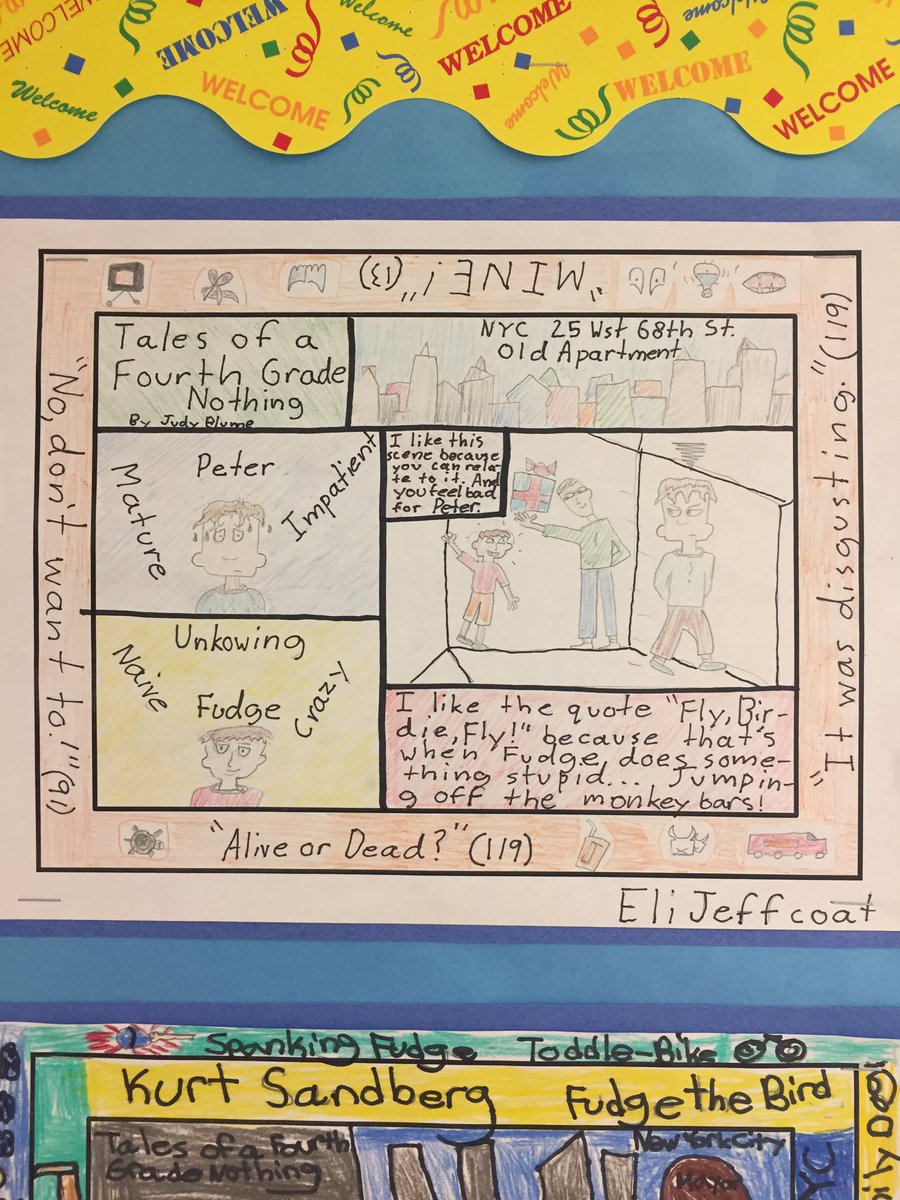 WELCOME
WELCOME
Welcome
WELCOME
Welcome
WELCOME
Welcome
Welcome
WELCOME
WELCOME
"MINE!" (13)
"No, don't want to." (91)
"It was disgusting." (119)
Tales of a
Fourth Grade
Nothing
By Judy Blume
NYC 25 Wst 68th St.
Old Apartment
Peter
Mature
Impatient
I like this
scene because
you can rela-
te to it. And
you feel bad
for Peter.
Unkowing
Naive
Fudge
Crazy
I like the quote "Fly, Bir-
die, Fly!" because that's
when Fudge, does some-
thing stupid... Jumpin-
g off the monkey bars!
"Alive or Dead?" (119)
J
Eli Jeffcoat
Spanking Fudge Toddle-Bike
Kurt Sandberg Fudge the Bird
Tales of a Fourth
Grade Nothing
New York City
Mayor
YC